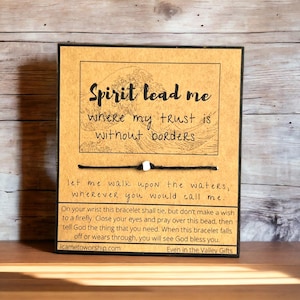 Spirit lead me
where my trust is
without borders
let me walk upon the waters,
wherever you would call me.
On your wrist this bracelet shall tie, but don't make a wish
to a firefly. Close your eyes and pray over this bead, then
tell God the thing that you need. When this bracelet falls
off or wears through, you will see God bless you.
icametoworship.com Even in the Valley Gifts